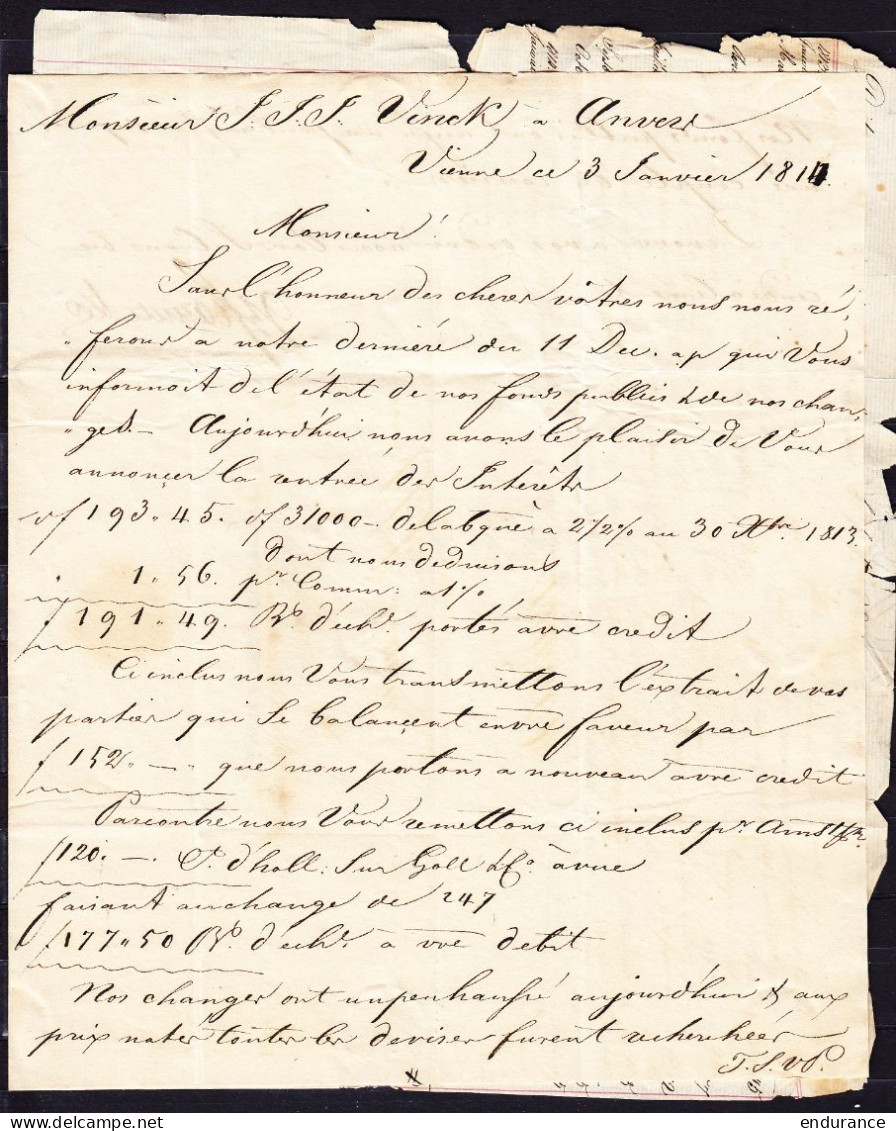 Monsieur J. J. J. Vinck, a Anvers
Vienne ce 3 Janvier 1814.
Monsieur!
Sans l'honneur des cheres vôtres nous nous ré,
„ferons a notre derniére du 11 Dec. ap qui Vous
informoit de l'état de nos fonds publics & de nos chan,
„ges. – Aujourd'hui nous avons le plaisir de Vous
annonçer la rentrée des Interêts
f 193„45. f 31000 –. de la bque a 2½% au 30 Xbre 1813.
dont nous deduisons
1„56. pr Comm: a 1%,
f 191„49. Bo. d'ech. portés a vre credit
Ci inclus nous Vous transmettons l'extrait de vos
parties qui se balançent en vre faveur par
f 152„–„ que nous portons a nouveau a vre credit
Parcontre nous Vous remettons ci inclus pr Amstm
f 120. –. P. d'holl: Sur Goll & Co. à vue
faisant au change de 247
f 177„50 Bo. d'ech. a vre debit
Nos changes ont un peu haussé aujourd'hui & aux
prix notés toutes les devises furent recherchées
T. S. v P.
endurance